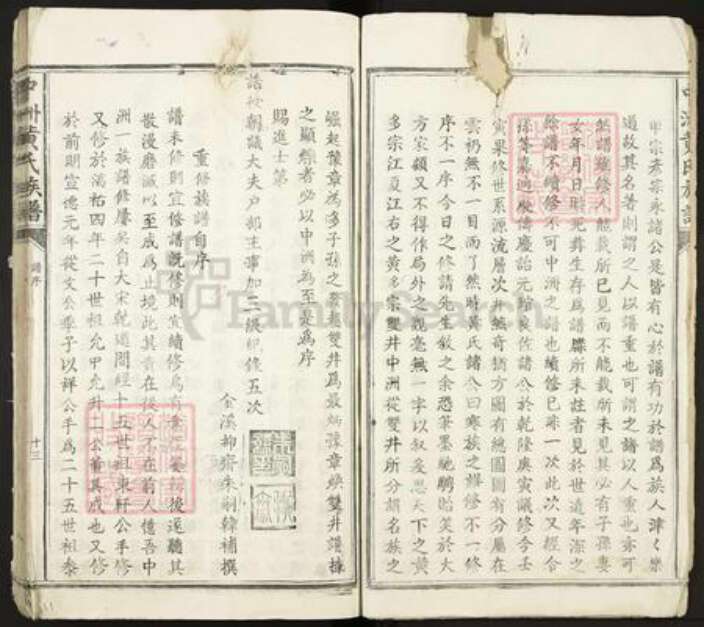 中宗彥宗永諸公是皆有心於譜有功於譜爲族人津々樂
道故其名著則謂之人以譜重也可謂之譜以人重也亦可
然譜雖修人能載所已見而不能載所未見其必有子孫妻
女年月日時死葬生存爲譜牒所未註者見於世遠年深之
餘譜不續修不可中洲之譜也續修已非一次此次又經合
孫等嘉
寅果修世系源流層次井然奇猶方圖有總圖圖有分屬在
雲礽無不一目而了然時黃氏諸公曰寒族之譜修不一修
序不一序今日之修請先生敘之余恐筆墨馳騁貽笑於大
方家顧又不得作局外之觀毫無一字以叙爰思天下之黃
多宗江夏江右之黃多宗雙井中洲從雙井所分頴名族之
崛起豫章爲多子孫之繁衍雙井爲最炳豫章映雙井譜據
之顯綜者必以中洲爲至是爲序
賜進士第
誥授朝議大夫戶部主事加三級紀錄五次
金溪柳齋朱嗣韓補撰
重修族譜自序
譜未修則宜修譜既修則宜續修
散漫磨滅以至成爲止境此其責在後人不在前人憶吾中
洲一族譜修屢矣自大宋乾道間經十五世祖東軒公手修
又修於淳祐四年二十世祖允甲允升二公董其成也又修
於前明宣德元年從文公季子以祥公手爲二十五世祖泰
中洲黃氏族譜
譜序
十三
FamilySearch